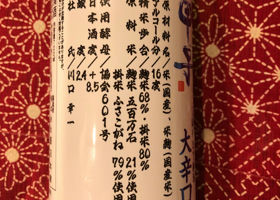 大辛口
原材料名／米（国産）、米麹（国産米）
アルコール分／16度
精米歩合／麹米68%・掛米80%
原料米／麹米 五百万石 21%使用
掛米 ふさこがね 79%使用
使用酵母／協会601号
日本酒度／+8.5
酸度／2.4
杜氏／川口幸一